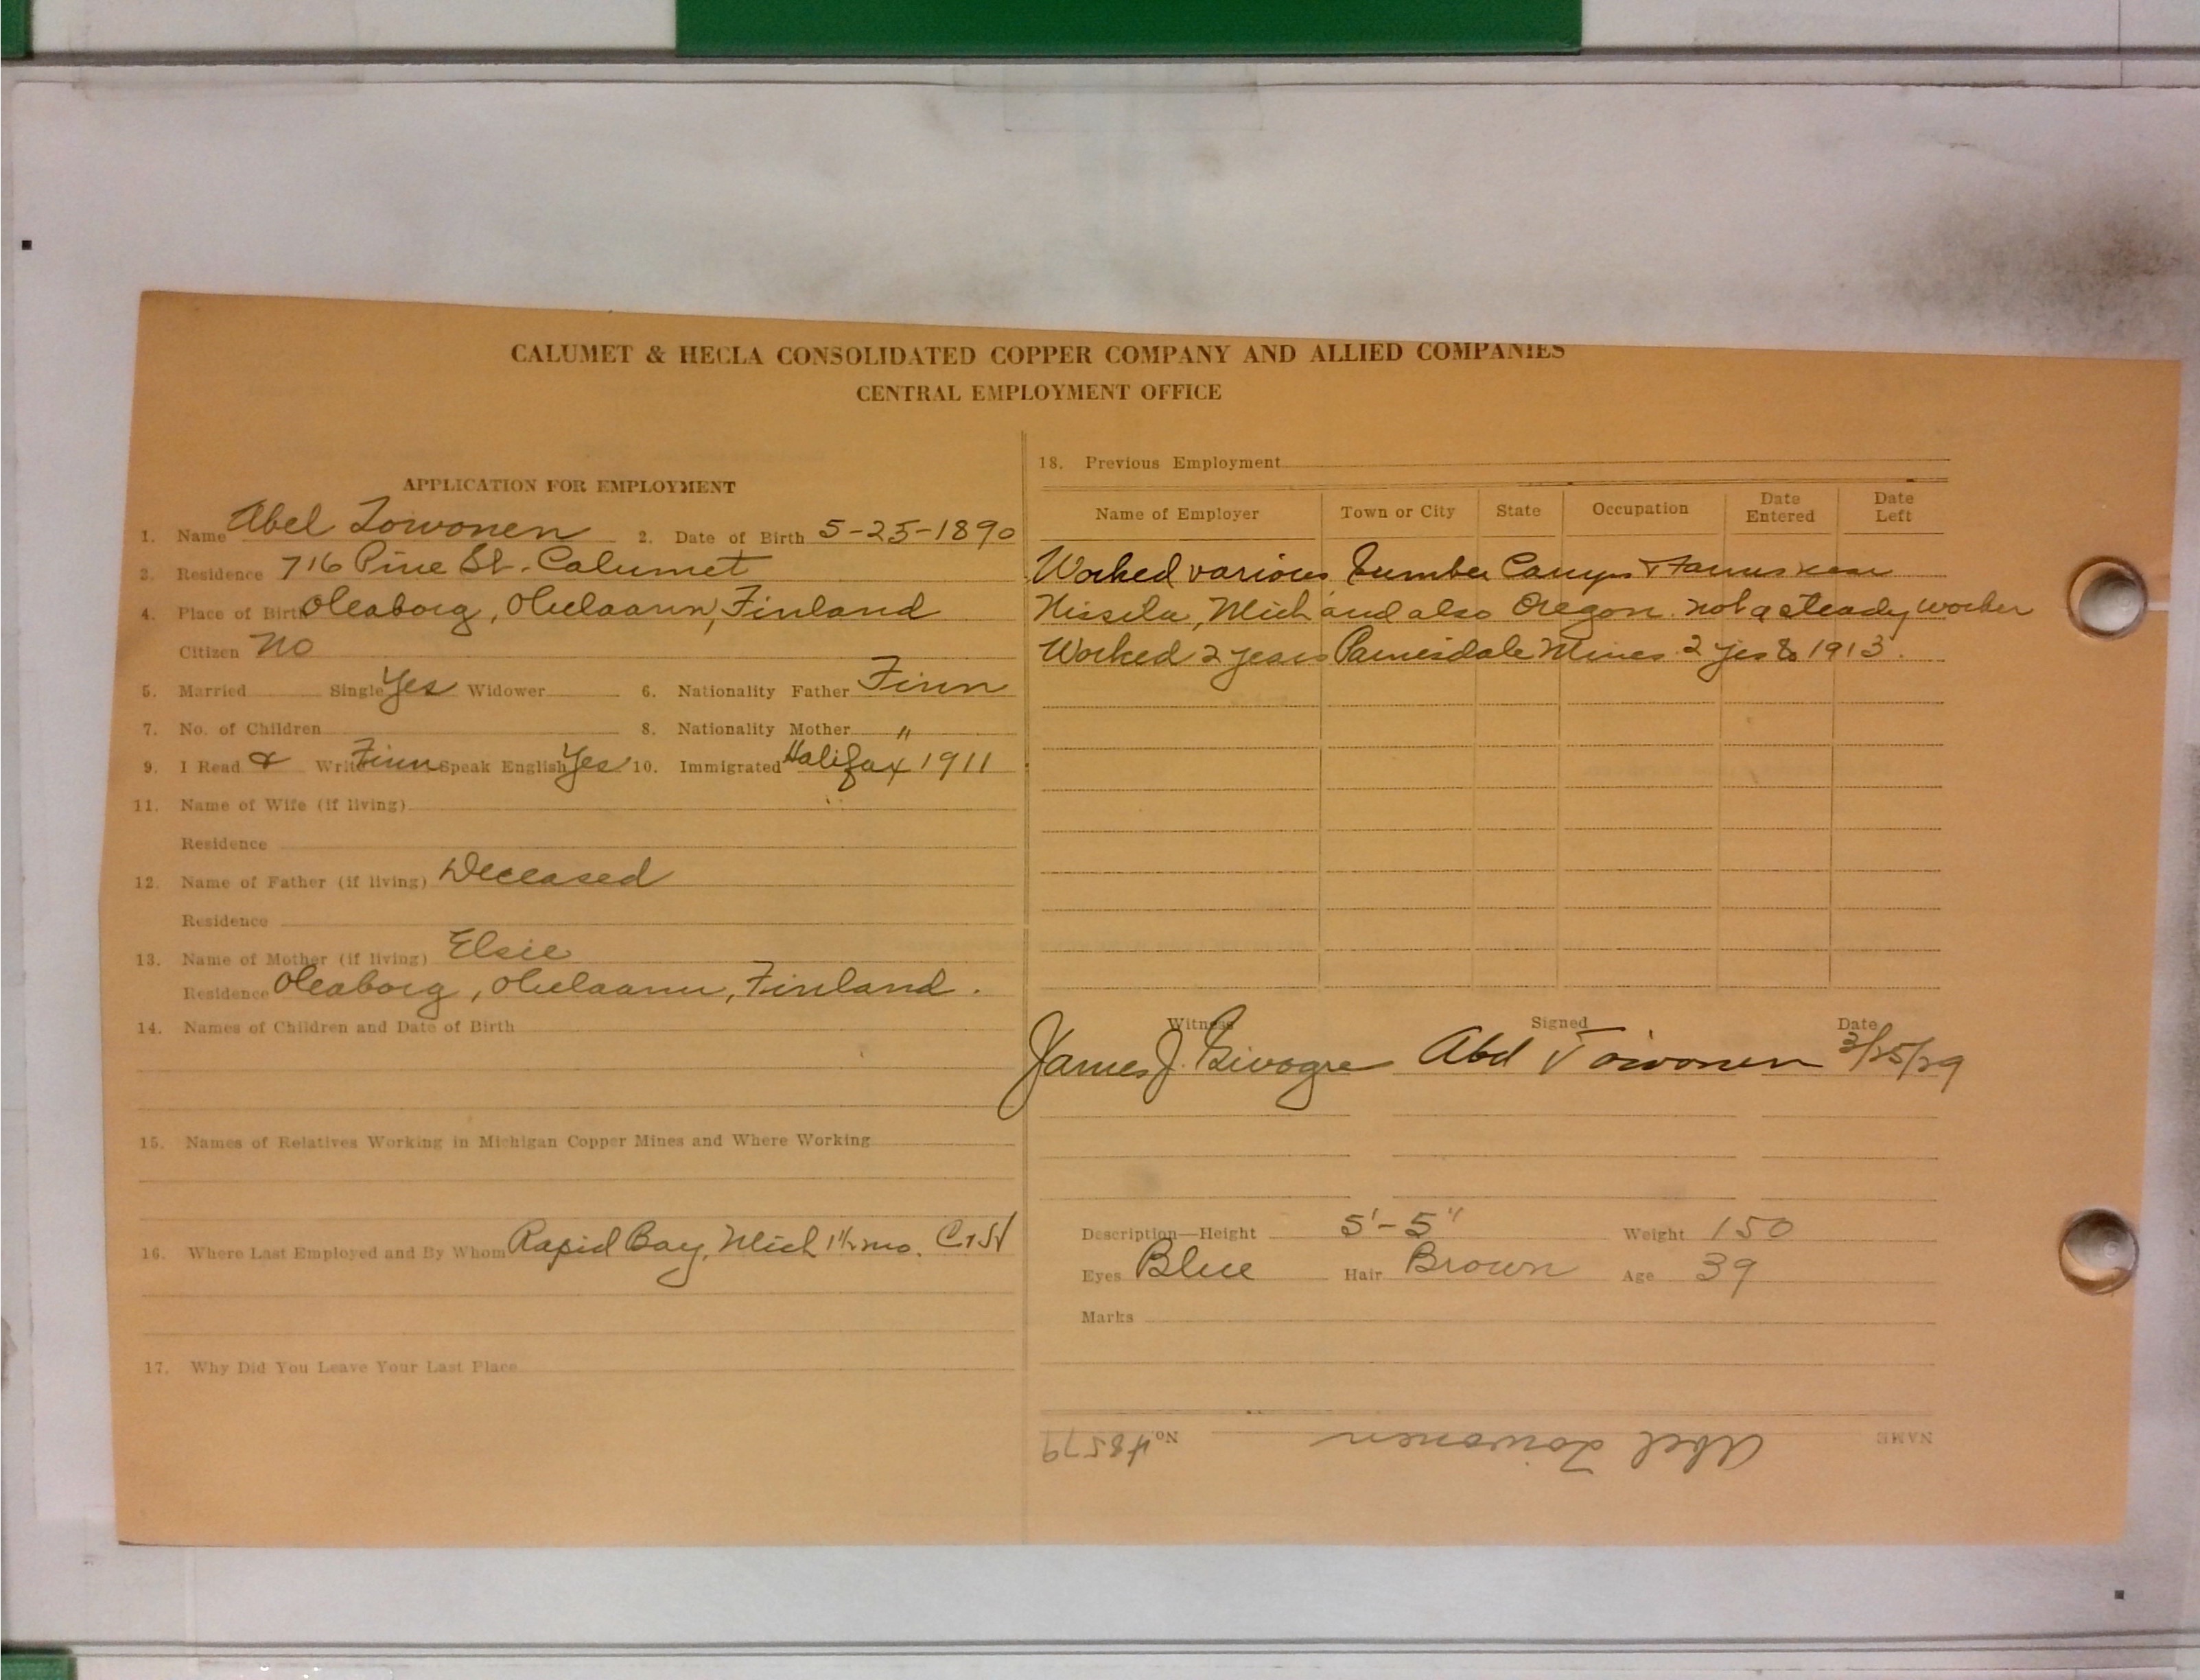 CALUMET & HECLA CONSOLIDATED COPPER COMPANY AND ALLIED COMPANIES
CENTRAL EMPLOYMENT OFFICE
APPLICATION FOR EMPLOYMENT
1. Name Abel Toivonen 2. Date of Birth 5-25-1890
3. Residence 716 Pine St. Calumet
4. Place of Birth Oleaborg, Olulaann, Finland
Citizen No
5. Married Single Yes Widower 6. Nationality Father Finn
7. No. of Children 8. Nationality Mother "
9. I Read & Write Finn Speak English Yes 10. Immigrated Halifax 1911
11. Name of Wife (if living)
Residence
12. Name of Father (if living) Deceased
Residence
13. Name of Mother (if living) Elsie
Residence Oleaborg, Olulaann, Finland.
14. Names of Children and Date of Birth
15. Names of Relatives Working in Michigan Copper Mines and Where Working
16. Where Last Employed and By Whom Rapid Bay, Mich 1½ mo.
17. Why Did You Leave Your Last Place
18. Previous Employment
Name of Employer Town or City State Occupation Date Entered Date Left
Worked various Lumber Camps & Farms near
Nissila, Mich and also Oregon. not a steady worker
Worked 2 years Painesdale Mines 2 yrs 1913.
Witness Signed Date
James J. Abel Toivonen 3/25/29
Description—Height 5'-5" Weight 150
Eyes Blue Hair Brown Age 39
Marks
NAME Abel Toivonen No. 48579